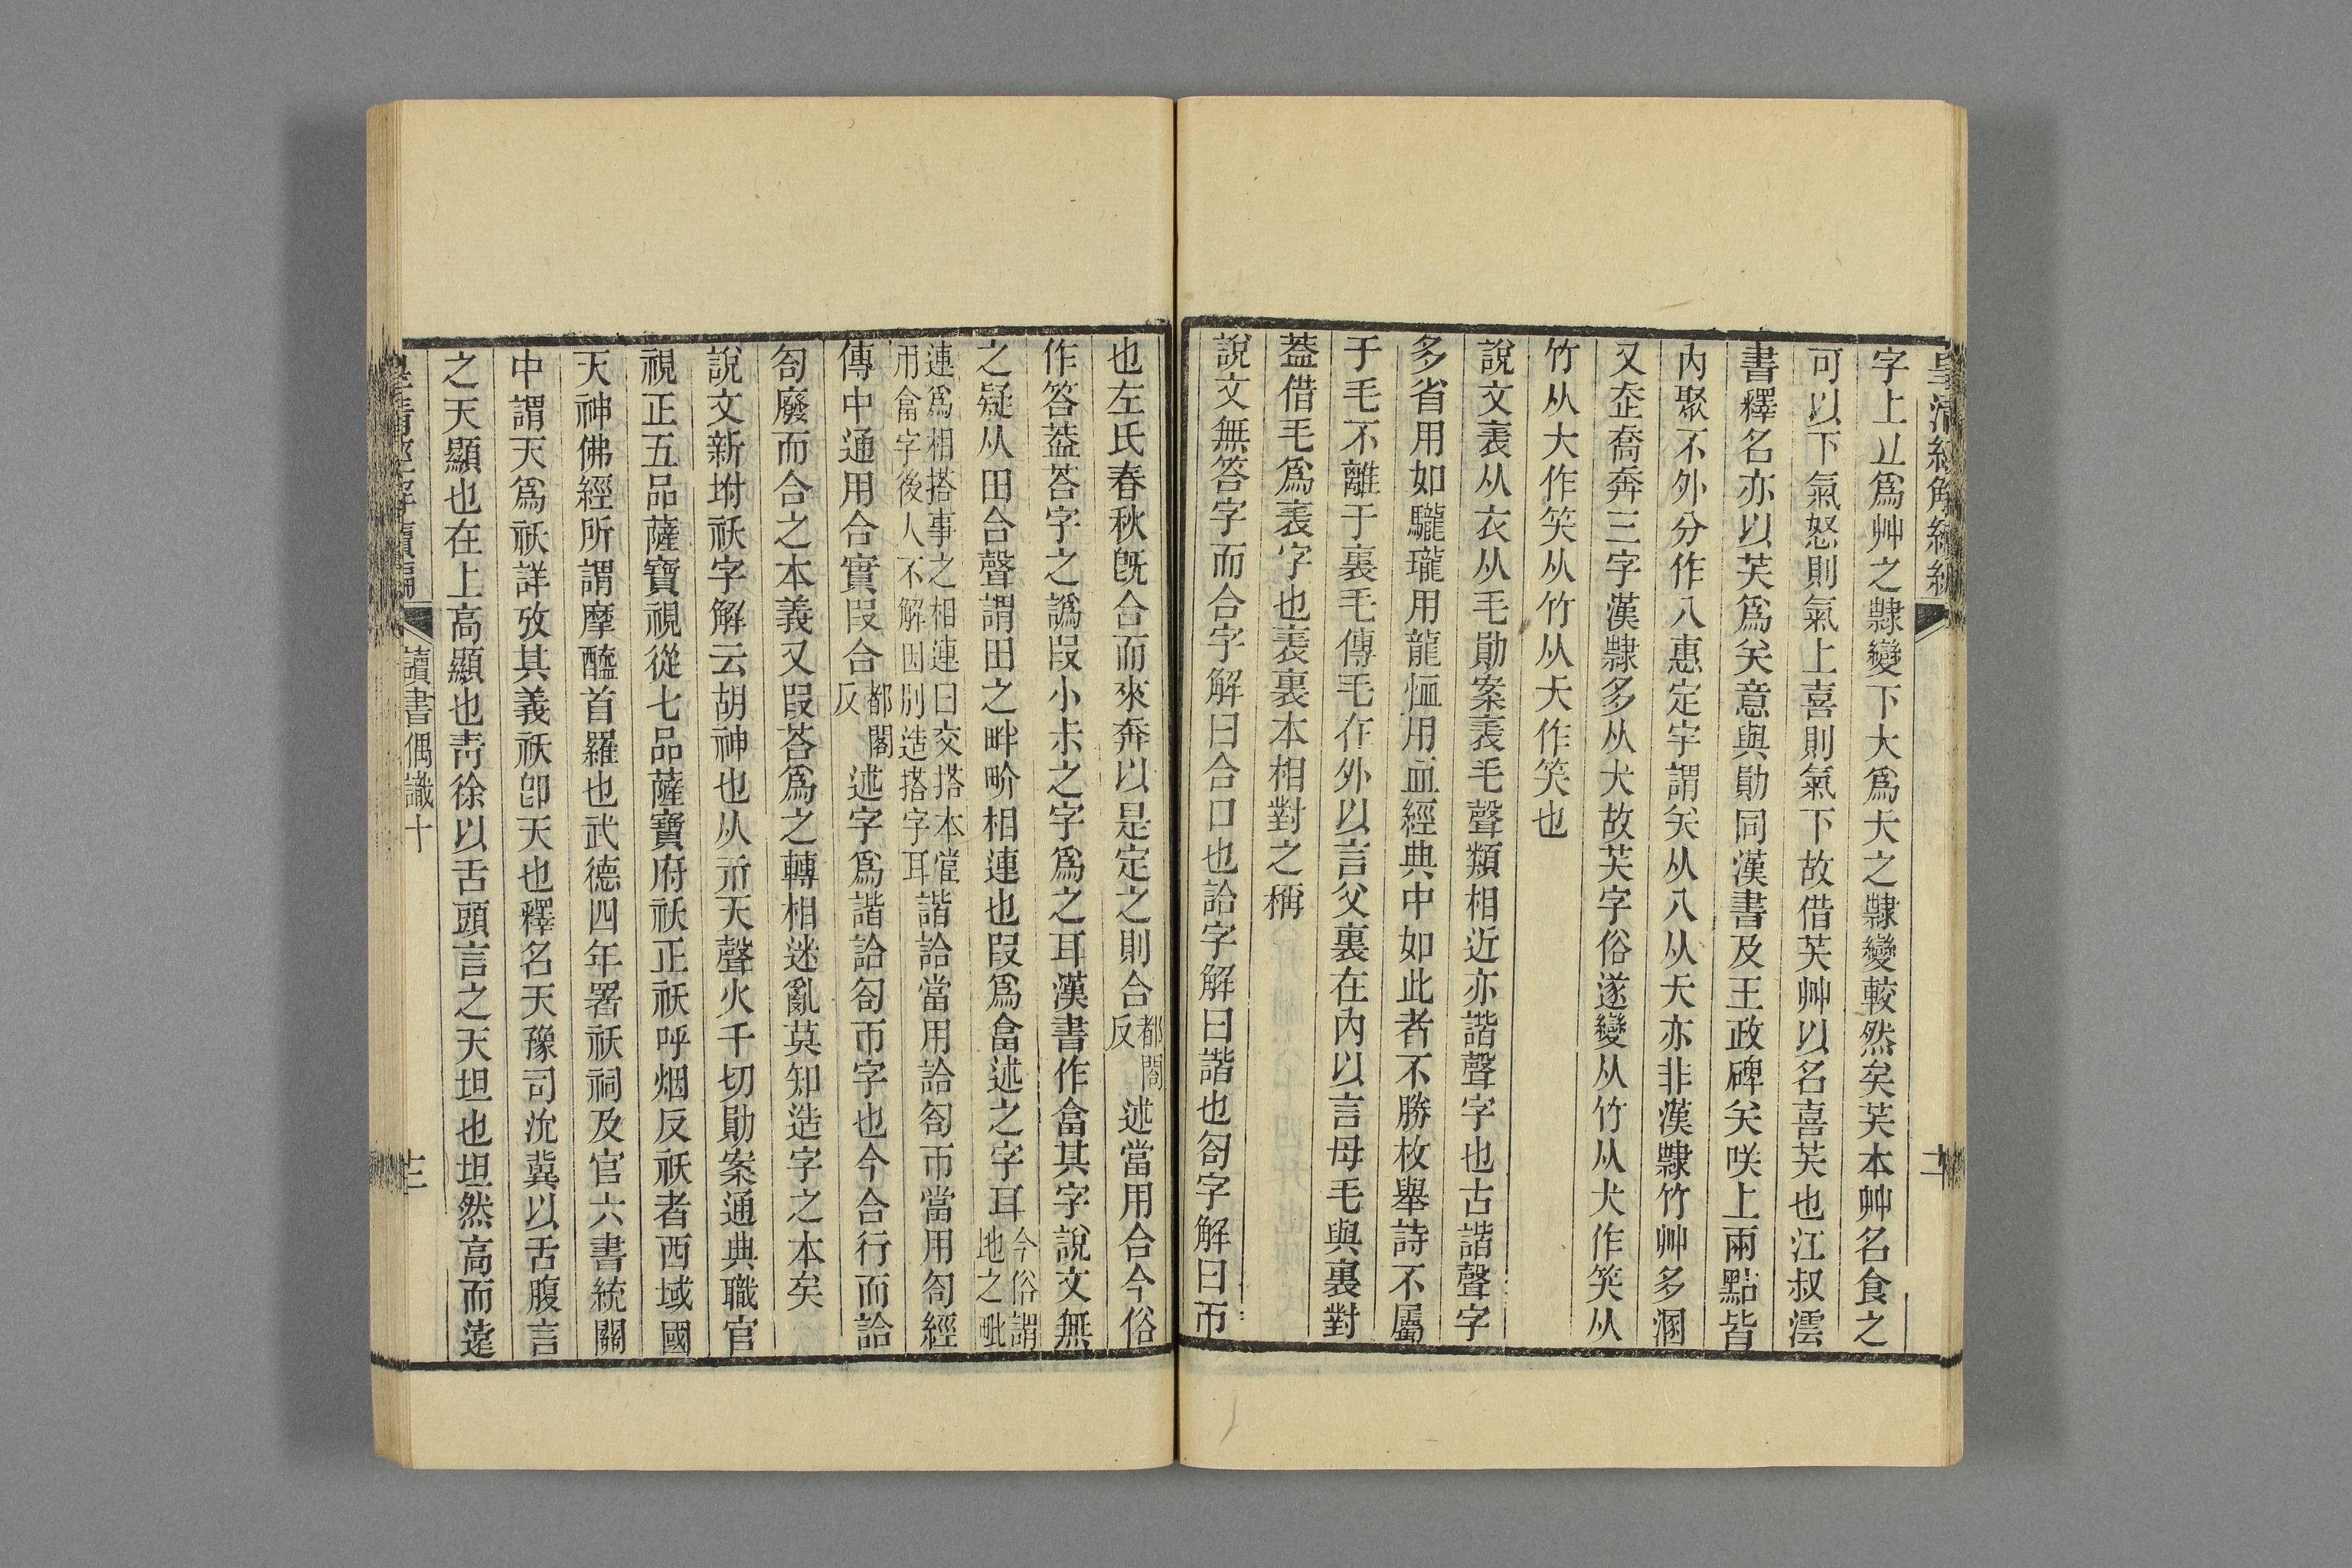 字上丠爲艸之隸變下大爲夭之隸變較然矣芺本艸名食之
可以下氣怒則氣上喜則氣下故借芺艸以名喜芺也江叔澐
書釋名亦以芺爲矢意與勛同漢書及王政碑矢咲上兩點皆
內聚不外分作八惠定宇謂矢从八从夭亦非漢隸竹艸多溷
又奔喬奔三字漢隸多从犬故芺字俗遂變从竹从犬作笑从
竹从大作笑从竹从夭作笑也
說文表从衣从毛勛案表毛聲類相近亦諧聲字也古諧聲字
多省用如驡瓏用龍恤用血經典中如此者不勝枚舉詩不屬
于毛不離于裏毛傳毛在外以言父裏在內以言母毛與裏對
葢借毛爲表字也表裏本相對之稱
說文無答字而合字解曰合口也詥字解曰諧也匌字解曰帀
也左氏春秋旣合而來奔以是定之則合都閤反述當用合今俗
作答葢荅字之譌叚小尗之字爲之耳漢書作畣其字說文無
之疑从田合聲謂田之畔畍相連也叚爲畣述之字耳今俗謂地之毗
連爲相搭事之相連曰交搭本當用畣字後人不解因別造搭字耳諧詥當用詥匌帀當用匌經
傳中通用合實叚合都閤反述字爲諧詥匌帀字也今合行而詥
匌廢而合之本義又叚荅爲之轉相迷亂莫知造字之本矣
說文新坿祆字解云胡神也从示天聲火千切勛案通典職官
視正五品薩寶視從七品薩寶府祆正祆呼烟反祆者西域國
天神佛經所謂摩醯首羅也武德四年署祆祠及官六書統關
中謂天爲祆詳攷其義祆卽天也釋名天豫司沇冀以舌腹言
之天顯也在上高顯也靑徐以舌頭言之天坦也坦然高而遠
讀書偶識十